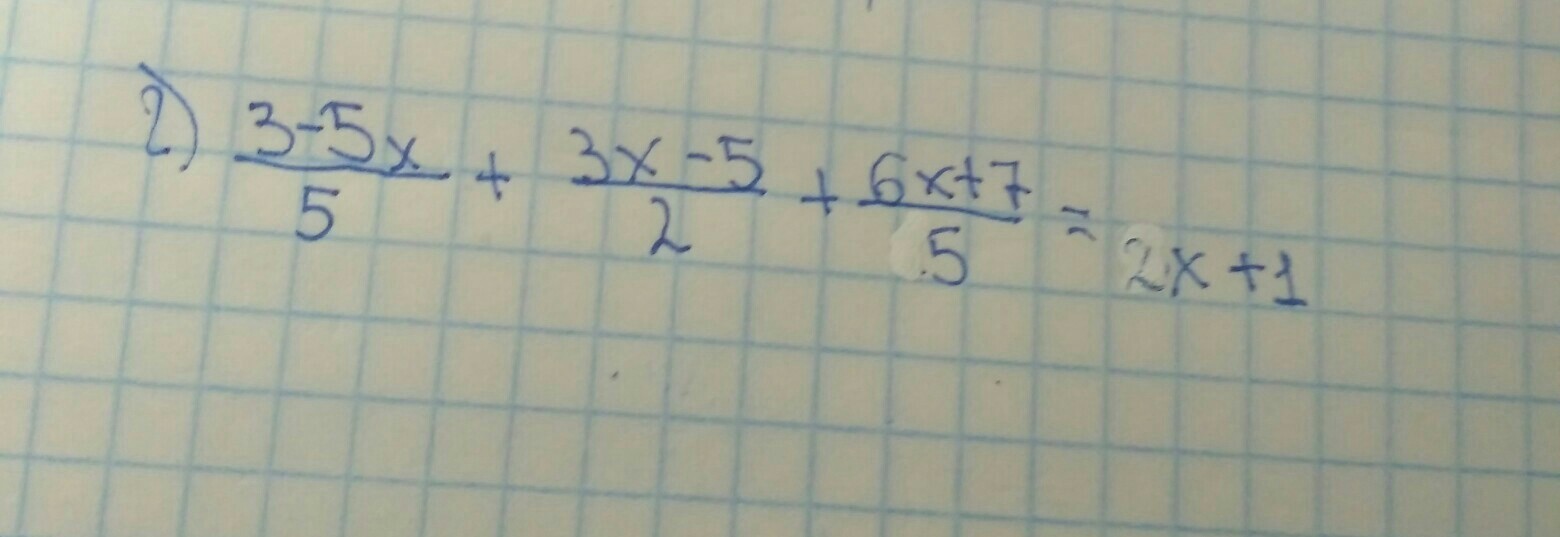 2) \frac{3-5x}{5} + \frac{3x-5}{2} + \frac{6x+7}{5} = 2x+1